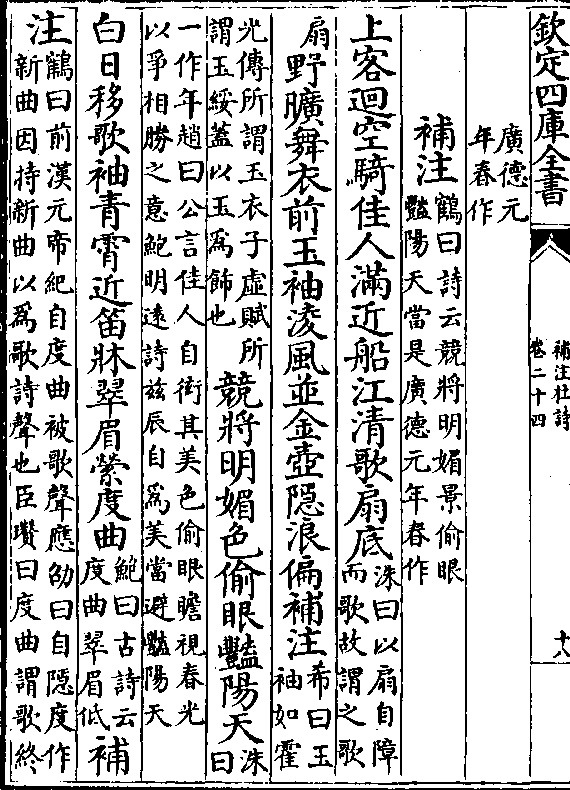 欽定四庫全書
補注杜詩
卷二十四
十八
廣德元
年春作
補注
鶴曰詩云競將明媚景偷眼
豔陽天當是廣德元年春作
上客迴空騎佳人滿近船江清歌扇底
洙曰以扇自障
而歌故謂之歌
扇
野曠舞衣前玉袖淩風並金壺隱浪偏補注
希曰玉
袖如霍
光傳所謂玉衣子虛賦所
謂玉綏蓋以玉爲飾也
競將明媚色偷眼豔陽天
洙
曰
一作年趙曰公言佳人自衒其美色偷眼瞻視春光
以爭相勝之意鮑明遠詩兹辰自爲美當避豔陽天
白日移歌袖青霄近笛牀翠眉縈度曲
鮑曰古詩云
度曲翠眉低
補
注
鶴曰前漢元帝紀自度曲被歌聲應劭曰自隱度作
新曲因持新曲以爲歌詩聲也臣瓚曰度曲謂歌終